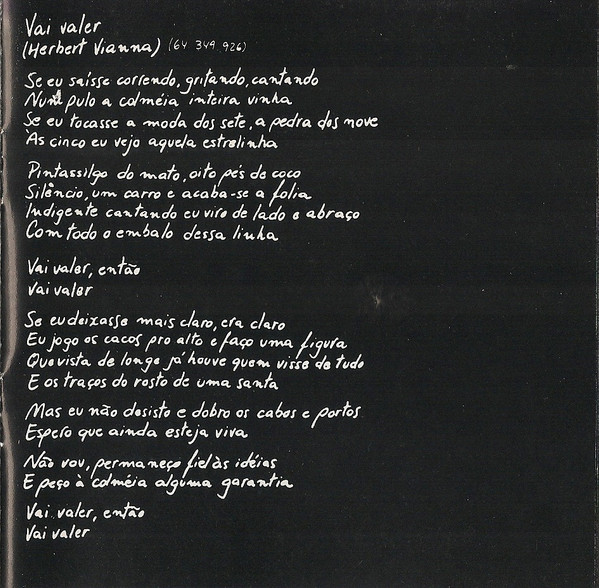 Vai valer
(Herbert Vianna) (64 349 926)
Se eu saísse correndo, gritando, cantando
Num pulo a colméia inteira vinha
Se eu tocasse a moda dos sete, a pedra dos nove
Às cinco eu vejo aquela estrelinha
Pintassilgo do mato, oito pés de coco
Silêncio, um carro e acaba-se a folia
Indigente cantando eu viro de lado e abraço
Com todo o embalo dessa linha
Vai valer, então
Vai valer
Se eu deixasse mais claro, era claro
Eu jogo os cacos pro alto e faço uma figura
Que vista de longe já houve quem visse de tudo
E os traços do rosto de uma santa
Mas eu não desisto e dobro os cabos e portos
Espero que ainda esteja viva
Não vou, permaneço fiel às idéias
E peço à colméia alguma garantia
Vai valer, então
Vai valer